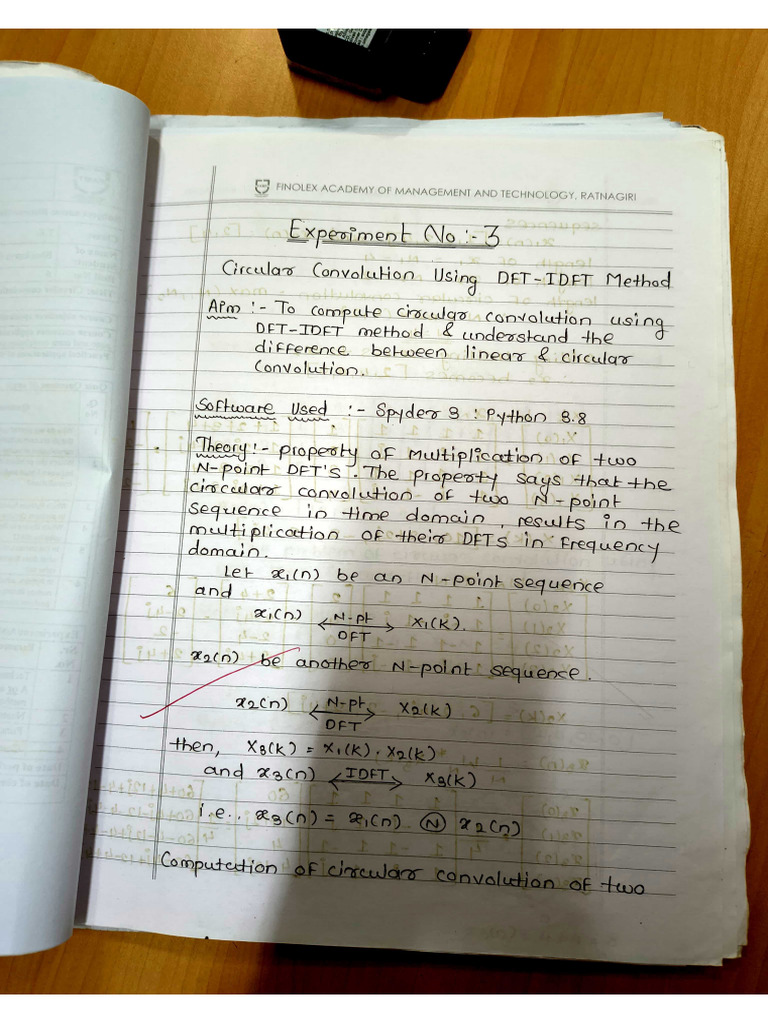 FINOLEX ACADEMY OF MANAGEMENT AND TECHNOLOGY, RATNAGIRI
Experiment No :- 3
Circular Convolution Using DFT-IDFT Method
Aim :- To compute circular convolution using
DFT-IDFT method & understand the
difference between linear & circular
Convolution.
Software Used :- Spyder 3 : Python 3.8
Theory :- property of Multiplication of two
N-point DFT's. The property says that the
circular convolution of two N-point
sequence in time domain, results in the
multiplication of their DFTs in frequency
domain.
Let x1(n) be an N-point sequence
and
x1(n) ⟷ N-pt DFT X1(k).
x2(n) be another N-point sequence.
x2(n) ⟷ N-pt DFT X2(k)
then, X3(k) = X1(k) . X2(k)
and x3(n) ⟷ IDFT X3(k)
i.e.. x3(n) = x1(n) Ⓝ x2(n)
Computation of circular convolution of two